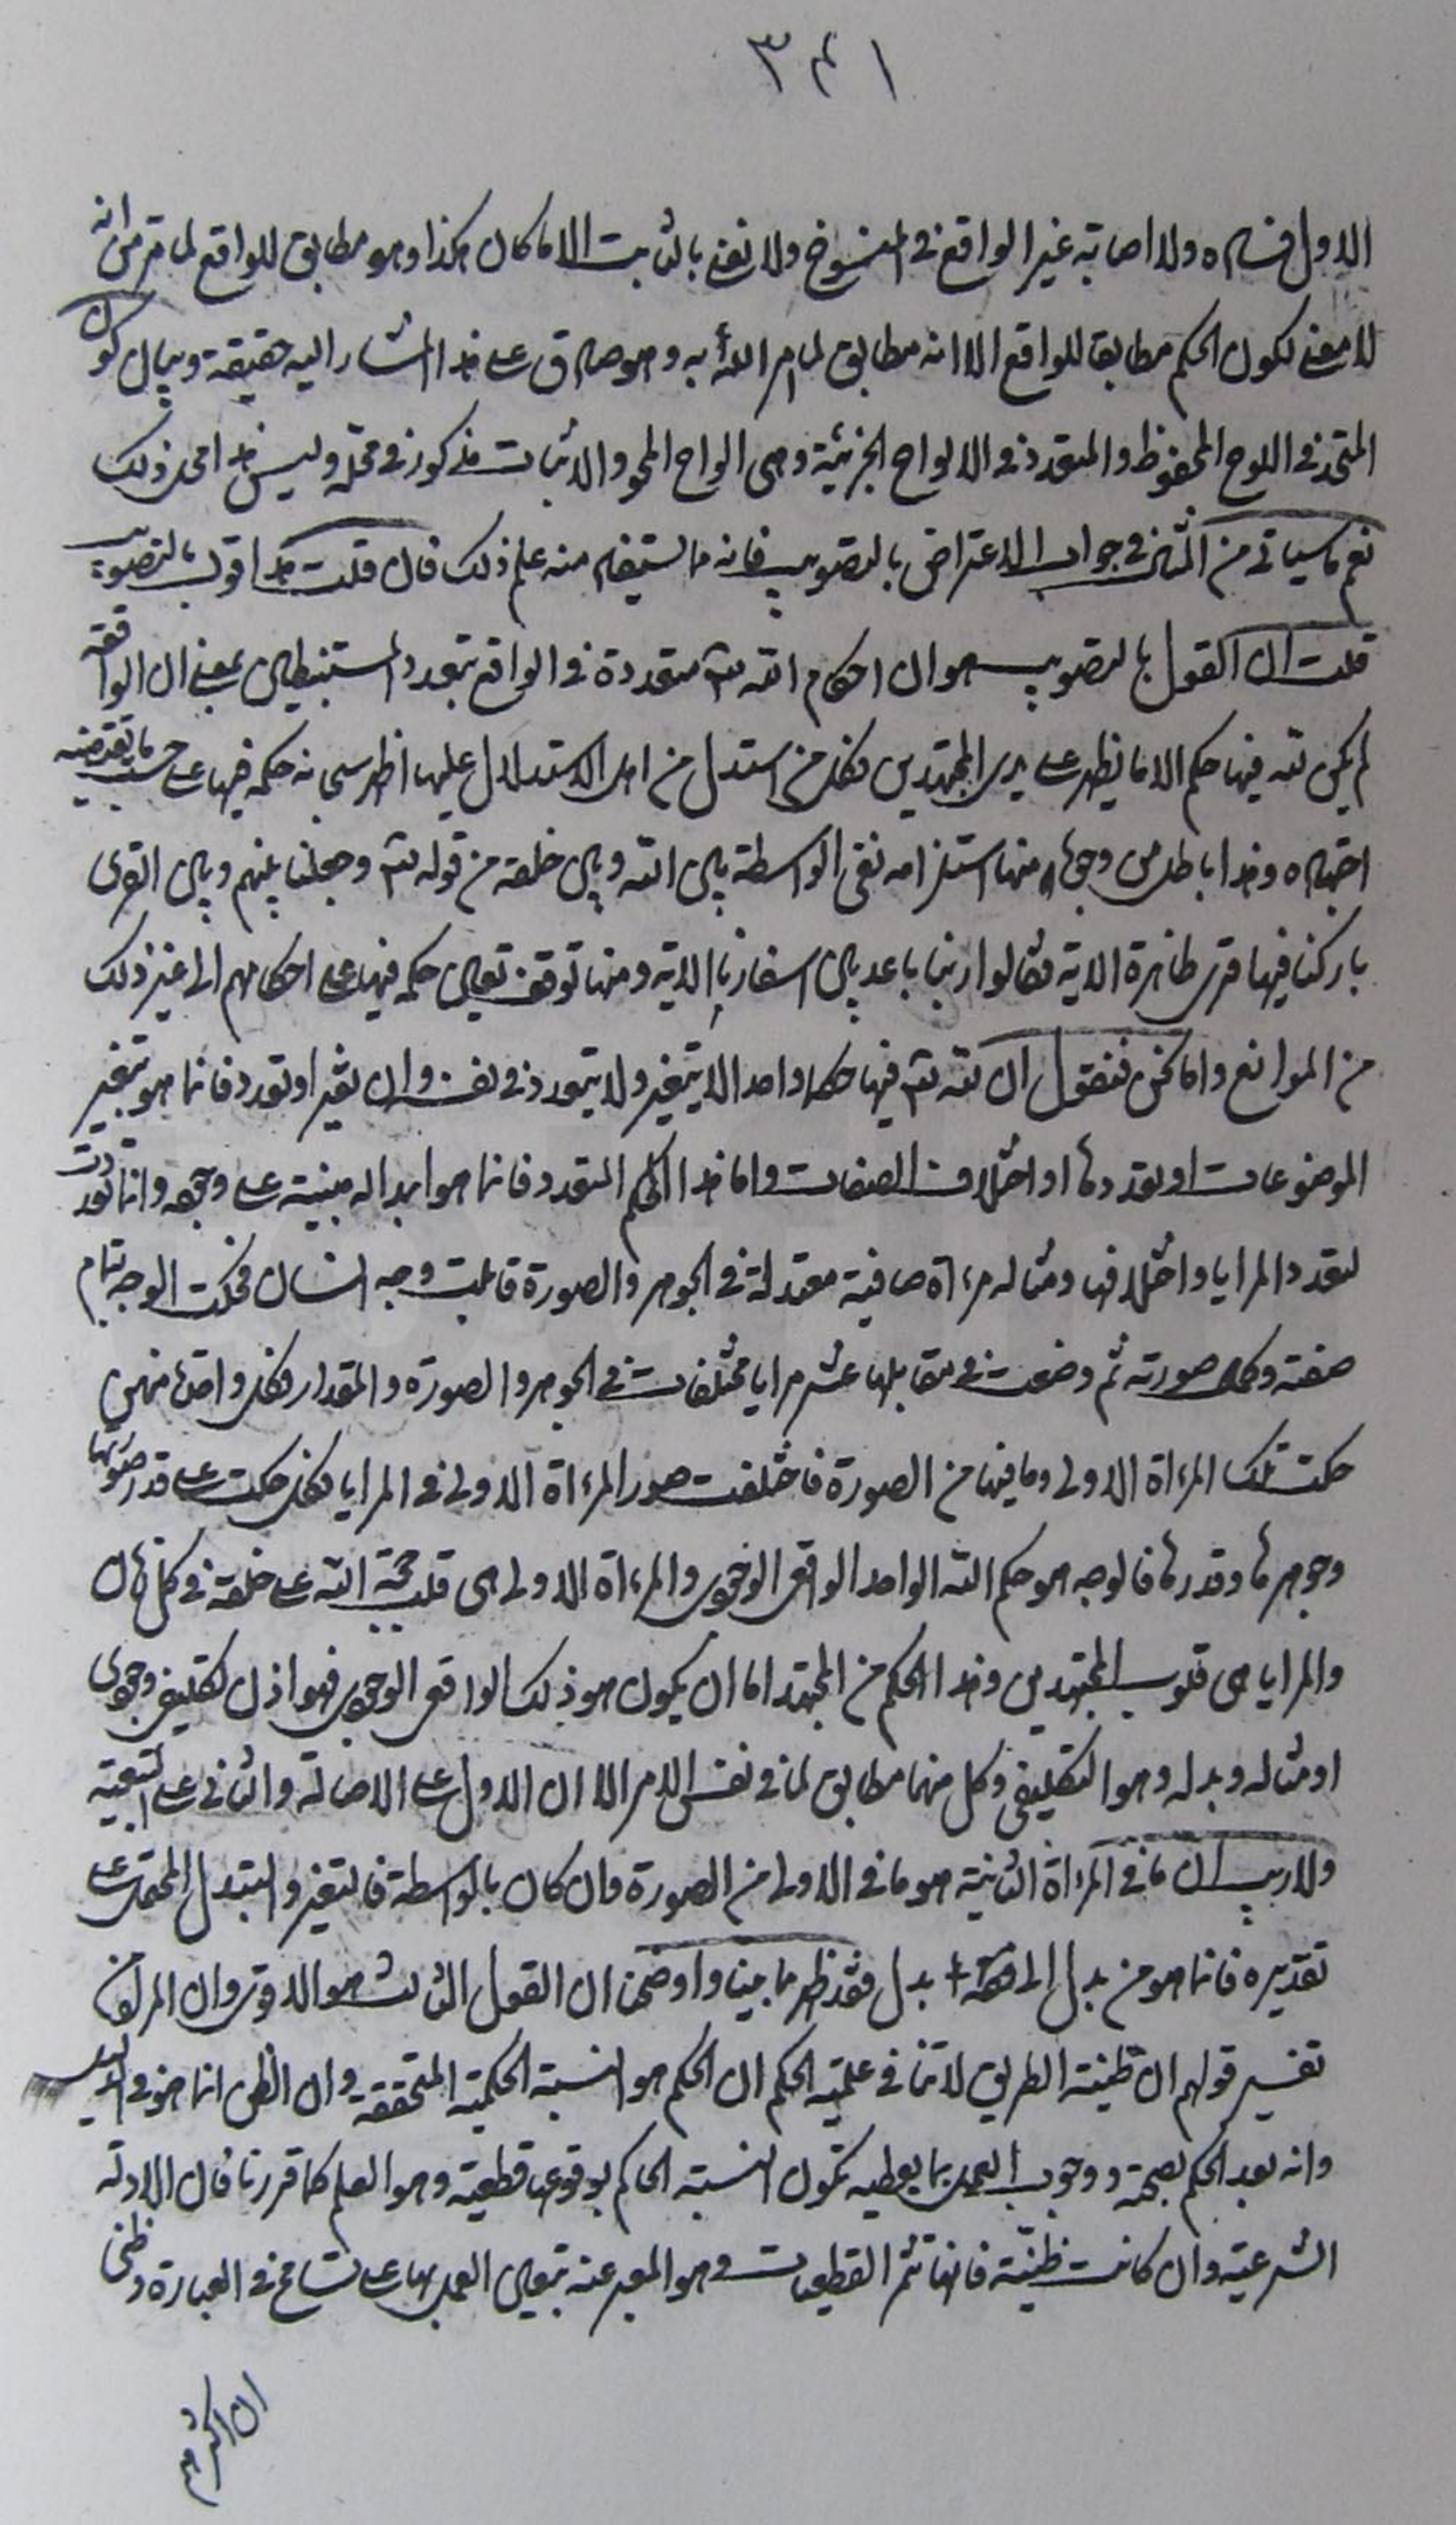 ٣٤١
الاول فساده ولا اصابة غير الواقع في المنسوخ ولا نعني بالثابت الا ما كان هكذا وهو مطابق للواقع لما قرر من انه
لا معنى لكون الحكم مطابقا للواقع الا انه مطابق لما امر الله به وهو صادق على هذا المشار اليه حقيقة وبيان كون
المتحد في اللوح المحفوظ والمتعدد في الالواح الجزئية وهي الواح المحو والاثبات مذكور في محله وليس هذا محل ذلك
نعم ما سيأتي من المثل في جواب الاعتراض بالتصويب فانه ما يستفهم منه علم ذلك فان قلت هذا قول بالتصويب
قلت ان القول بالتصويب هو ان احكام الله تعه متعددة في الواقع بتعدد المستنبطين بمعنى ان الواقعة
لم يكن لله فيها حكم الا ما يظهر على يدي المجتهدين فكل من استدل من اهل الاستدلال عليها اظهر سبحانه حكمه فيها على حسب ما يقتضيه
اجتهاده وهذا باطل من وجوه منها استلزامه نفي الواسطة بين الله وبين خلقه من قوله تعه وجعلنا بينهم وبين القرى
باركنا فيها قرى ظاهرة الاية فقالوا ربنا باعد بين اسفارنا الاية ومنها توقف تعيين حكمه فيها على احكامهم الى غير ذلك
من الموانع واما نحن فنقول ان لله تعه فيها حكما واحدا لا يتغير ولا يتعدد في نفسه وان تغير او تعدد فانما هو بتغير
الموضوعات او تعددها او اختلاف الصفات واما هذا الحكم المتعدد فانما هو ابداله مبنية على وجهه وانما تعددت
لتعدد المرايا واختلافها ومثاله مرءاة صافية معتدلة في الجوهر والصورة قابلت وجه انسان فحكت الوجه بتمام
صفته وكمال صورته ثم وضعت في مقابلها عشر مرايا مختلفات في الجوهر والصورة والمقدار فكل واحدة منهن
حكت تلك المرءاة الاولى وما فيها من الصورة فاختلفت صور المرءاة الاولى في المرايا فكل حكت على قدر صورتها
وجوهرها وقدرها فالوجه هو حكم الله الواحد الواقعي الوجودي والمرءاة الاولى هي قلب حجة الله على خلقه في كل زمان
والمرايا هي قلوب المجتهدين وهذا الحكم من المجتهد اما ان يكون هو ذلك الواقعي الوجودي فهو اذن تكليفي وجودي
او مثاله وبدله وهو التكليفي وكل منهما مطابق لما في نفس الامر الا ان الاول على الاصالة والثاني على التبعية
ولا ريب ان ما في المرءاة الثانية هو ما في الاولى من الصورة وان كان بالواسطة فالتغير والتبدل المحتمل على
تقديره فانما هو من بدل الى بدل فقد ظهر مما بينا واوضحنا ان القول الثالث هو الاقوى وان المراد من
تفسير قولهم ان ظنية الطريق لا تنافي علمية الحكم ان الحكم هو النسبة الحكمية المتحققة وان الظن انما هو في الدليل
وانه بعد الحكم بصحته ووجوب العمل بما يعطيه تكون النسبة الحاكم بوقوعها قطعية وهو العلم كما قررنا فان الادلة
الشرعية وان كانت ظنية فانها تثمر القطعيات وهو المعبر عنه بتعين العمل بها على تسامح في العبارة وظني
ان اكثرهم